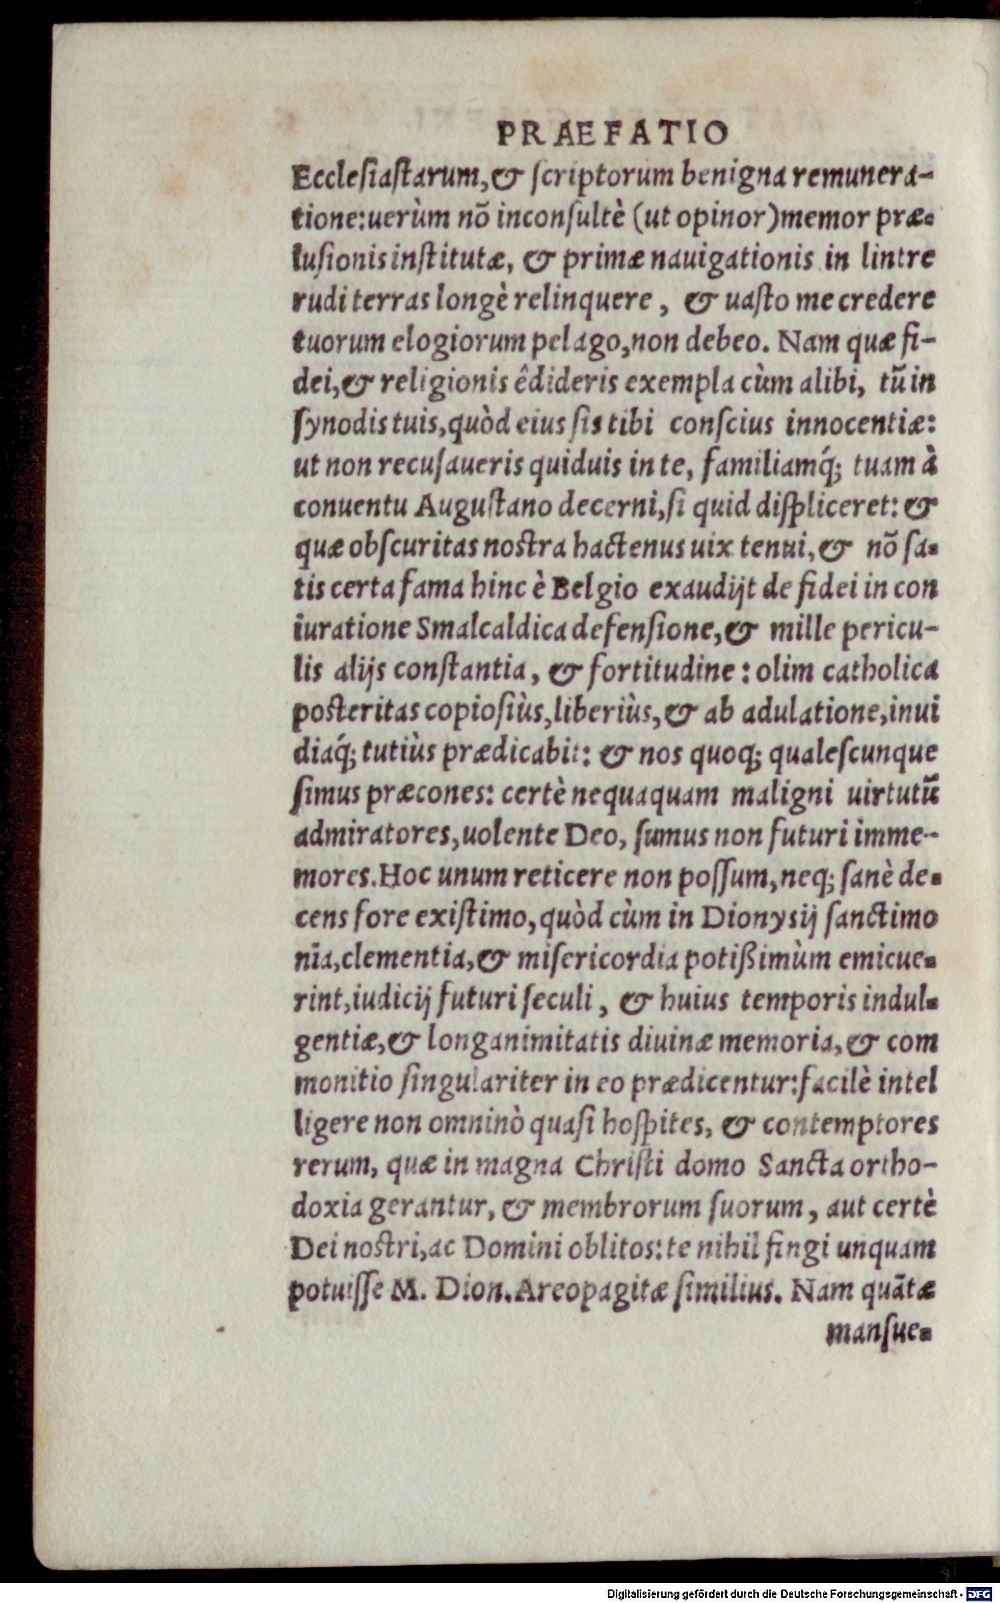 PRAEFATIO
Ecclesiastarum, & scriptorum benigna remunera-
tione: uerùm nõ inconsultè (ut opinor) memor præ-
lusionis institutæ, & primæ nauigationis in lintre
rudi terras longè relinquere, & uasto me credere
tuorum elogiorum pelago, non debeo. Nam quæ fi-
dei, & religionis êdideris exempla cùm alibi, tũ in
synodis tuis, quòd eius sis tibi conscius innocentiæ:
ut non recusaueris quiduis in te, familiamq́; tuam à
conuentu Augustano decerni, si quid displiceret: &
quæ obscuritas nostra hactenus uix tenui, & nõ sa-
tis certa fama hinc è Belgio exaudijt de fidei in con
iuratione Smalcaldica defensione, & mille pericu-
lis alijs constantia, & fortitudine: olim catholica
posteritas copiosiùs, liberiùs, & ab adulatione, inui
diaq́; tutiùs prædicabit: & nos quoq; qualescunque
simus præcones: certè nequaquam maligni uirtutũ
admiratores, uolente Deo, sumus non futuri imme-
mores. Hoc unum reticere non possum, neq; sanè de-
cens fore existimo, quòd cùm in Dionysij sanctimo
nia, clementia, & misericordia potißimùm emicue-
rint, iudicij futuri seculi, & huius temporis indul-
gentiæ, & longanimitatis diuinæ memoria, & com
monitio singulariter in eo prædicentur: facilè intel
ligere non omninò quasi hospites, & contemptores
rerum, quæ in magna Christi domo Sancta ortho-
doxia gerantur, & membrorum suorum, aut certè
Dei nostri, ac Domini oblitos: te nihil fingi unquam
potuisse M. Dion. Areopagitæ similius. Nam quãtæ
mansue-
Digitalisierung gefördert durch die Deutsche Forschungsgemeinschaft - DFG